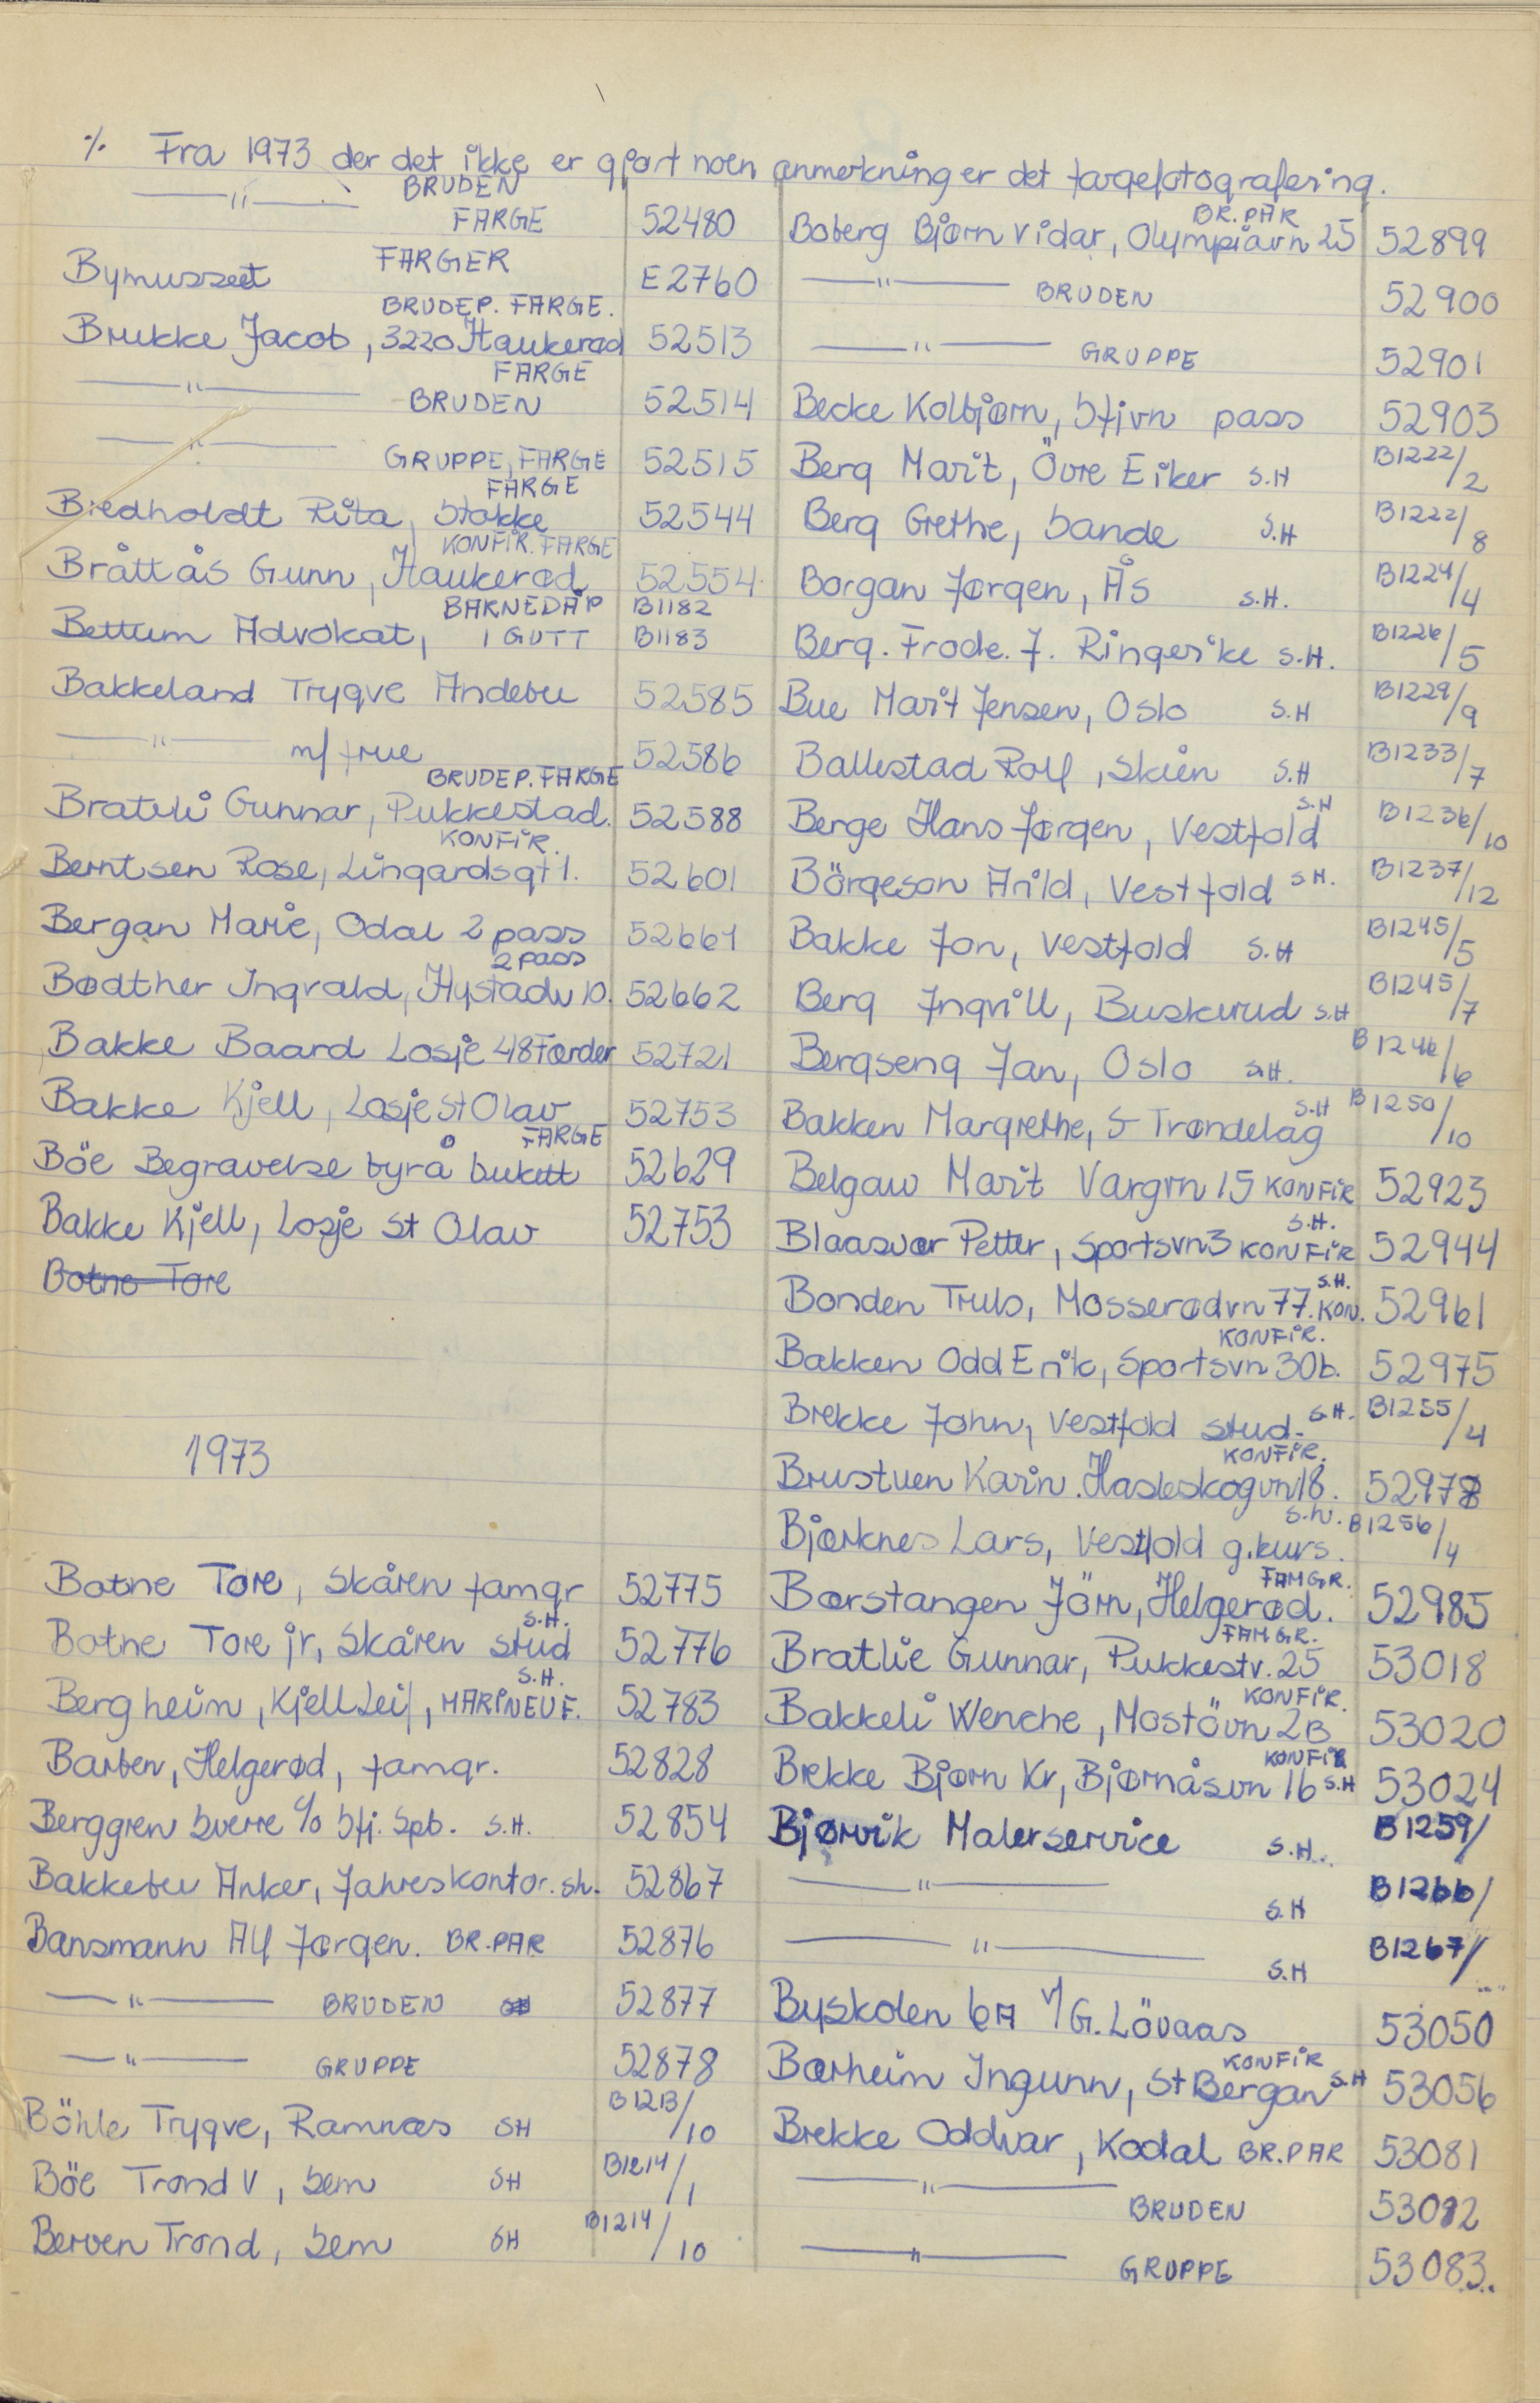 ·/. Fra 1973 der det ikke er gjort noen anmerkning er det fargefotografering.
—"— BRUDEN FARGE 52480
Bymuseet FARGER E2760
Brukke Jacob, 3220 Haukerød BRUDEP. FARGE. 52513
—"— FARGE BRUDEN 52514
—"— GRUPPE, FARGE 52515
Bredholdt Rita, Stokke FARGE 52544
Bråttås Gunn, Haukerød KONFIR. FARGE 52554
Bettum Advokat, BARNEDÅP 1 GUTT B1182 B1183
Bakkeland Trygve Andebu 52585
—"— m/ frue 52586
Bratteli Gunnar, Pukkestad. BRUDEP. FARGE 52588
Berntsen Rose, Lingardsgt 1. KONFIR. 52601
Bergan Marie, Odal 2 pass 52661
Bødther Ingvald, Hystadv 10. 2 pass 52662
Bakke Baard Losje 48 Færder 52721
Bakke Kjell, Losje St Olav 52753
Böe Begravelse byrå bukett FARGE 52629
Bakke Kjell, Losje St Olav 52753
Botne Tore
1973
Botne Tore, Skåren famgr 52775
Botne Tore jr, Skåren stud S.H. 52776
Bergheim, Kjell Leif, MARINEUF. S.H. 52783
Barben, Helgerød, famgr. 52828
Berggren Sverre c/o Sfj. Spb. S.H. 52854
Bakkebu Anker, Jahreskontor. sh. 52867
Bansmann Alf Jørgen. BR.PAR 52876
—"— BRUDEN 52877
—"— GRUPPE 52878
Böhle Trygve, Ramnæs SH B1213/10
Böe Trond V, Sem SH B1214/1
Berven Trond, Sem SH B1214/10
Boberg Bjørn Vidar, Olympiavn 25 BR.PAR 52899
—"— BRUDEN 52900
—"— GRUPPE 52901
Becke Kolbjørn, Sfjvn pass 52903
Berg Marit, Övre Eiker S.H B1222/2
Berg Grethe, Sande S.H B1222/8
Borgan Jørgen, Ås S.H. B1224/4
Berg. Frode. J. Ringerike S.H. B1226/5
Bue Marit Jensen, Oslo S.H B1229/9
Ballestad Rolf, Skien S.H B1233/7
Berge Hans Jørgen, Vestfold S.H B1236/10
Börgeson Arild, Vestfold S.H. B1237/12
Bakke Jon, Vestfold S.H B1245/5
Berg Ingvill, Buskerud S.H B1245/7
Bergseng Jan, Oslo S.H. B1246/6
Bakken Margrethe, S Trøndelag S.H B1250/10
Belgaw Marit Vargvn 15 KONFIR 52923
Blaasvær Petter, Sportsvn 3 S.H. KONFIR 52944
Bonden Truls, Mosserødvn 77. S.H. KON. 52961
Bakken Odd Erik, Sportsvn 30b. KONFIR. 52975
Brekke John, Vestfold stud. S.H. B1255/4
Brustuen Karin. Hasleskogvn 18. KONFIR. 52978
Bjørknes Lars, Vestfold g.kurs. S.h. B1256/4
Børstangen Jörn, Helgerød. FAMGR. 52985
Bratlie Gunnar, Pukkestv. 25 FAMGR. 53018
Bakkeli Wenche, Mostövn 2B KONFIR. 53020
Brekke Bjørn Kr, Bjørnåsvn 16 KONFIR S.H 53024
Bjørvik Malerservice S.H. B1259/
—"— S.H B1266/
—"— S.H B1267/
Byskolen 6A v/G. Lövaas 53050
Børheim Ingunn, St Bergan KONFIR S.H 53056
Brekke Oddvar, Kodal BR.PAR 53081
—"— BRUDEN 53082
—"— GRUPPE 53083